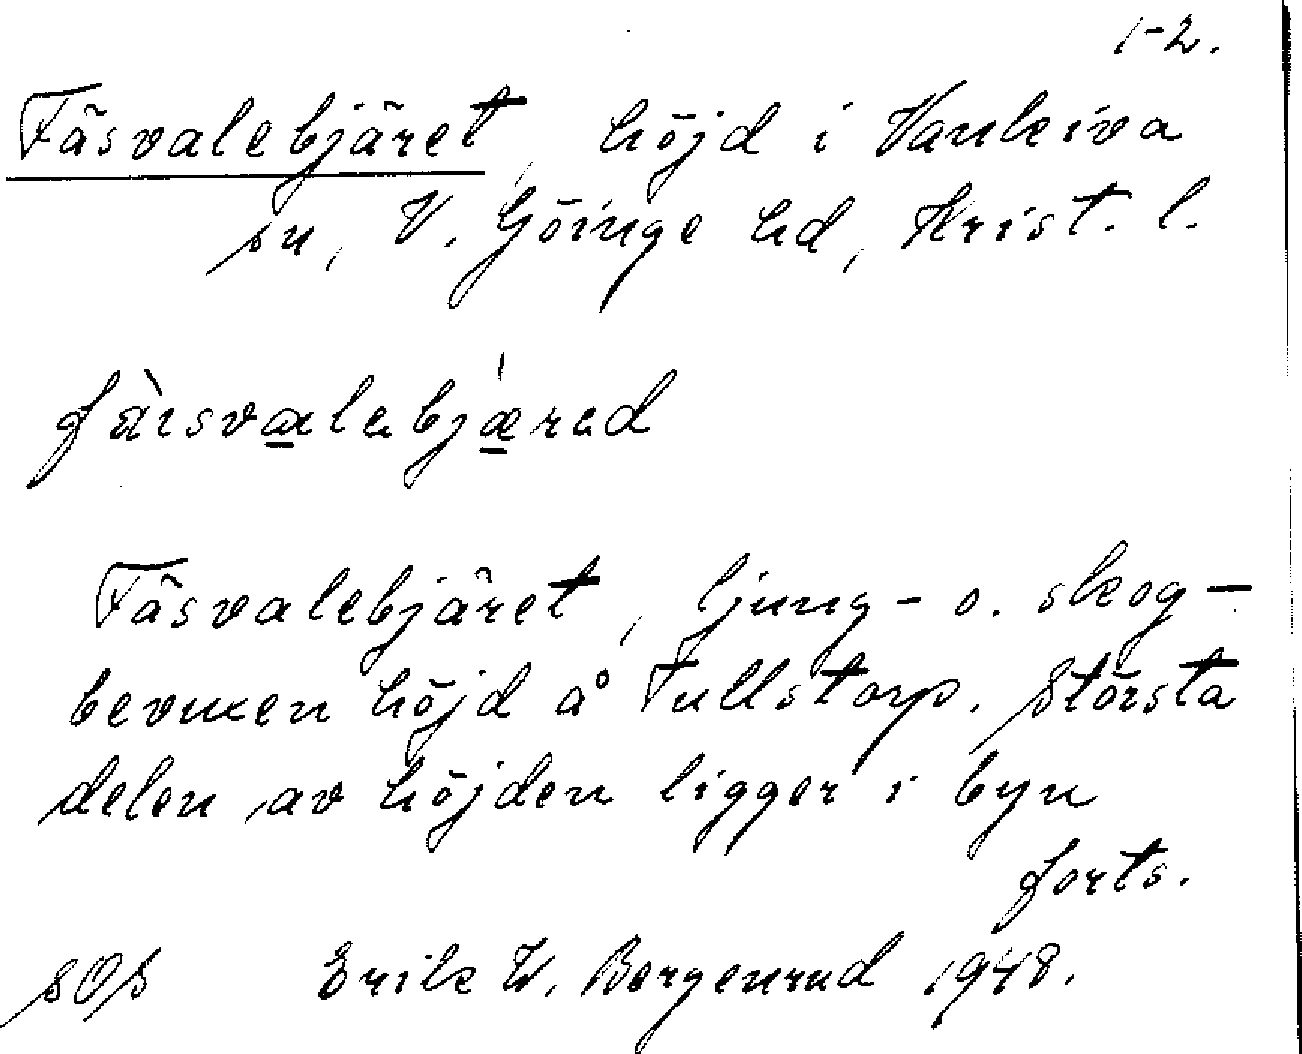 1-2.
Fäsvalebjäret, höjd i Vankiva
sn, V. Göinge hd, Krist. l.
Fäsvalebjäret, ljung- o. skog-
bevuxen höjd å Tullstorp. Största
delen av höjden ligger i byn
forts.
SOS Erik W. Borgenrud 1948.